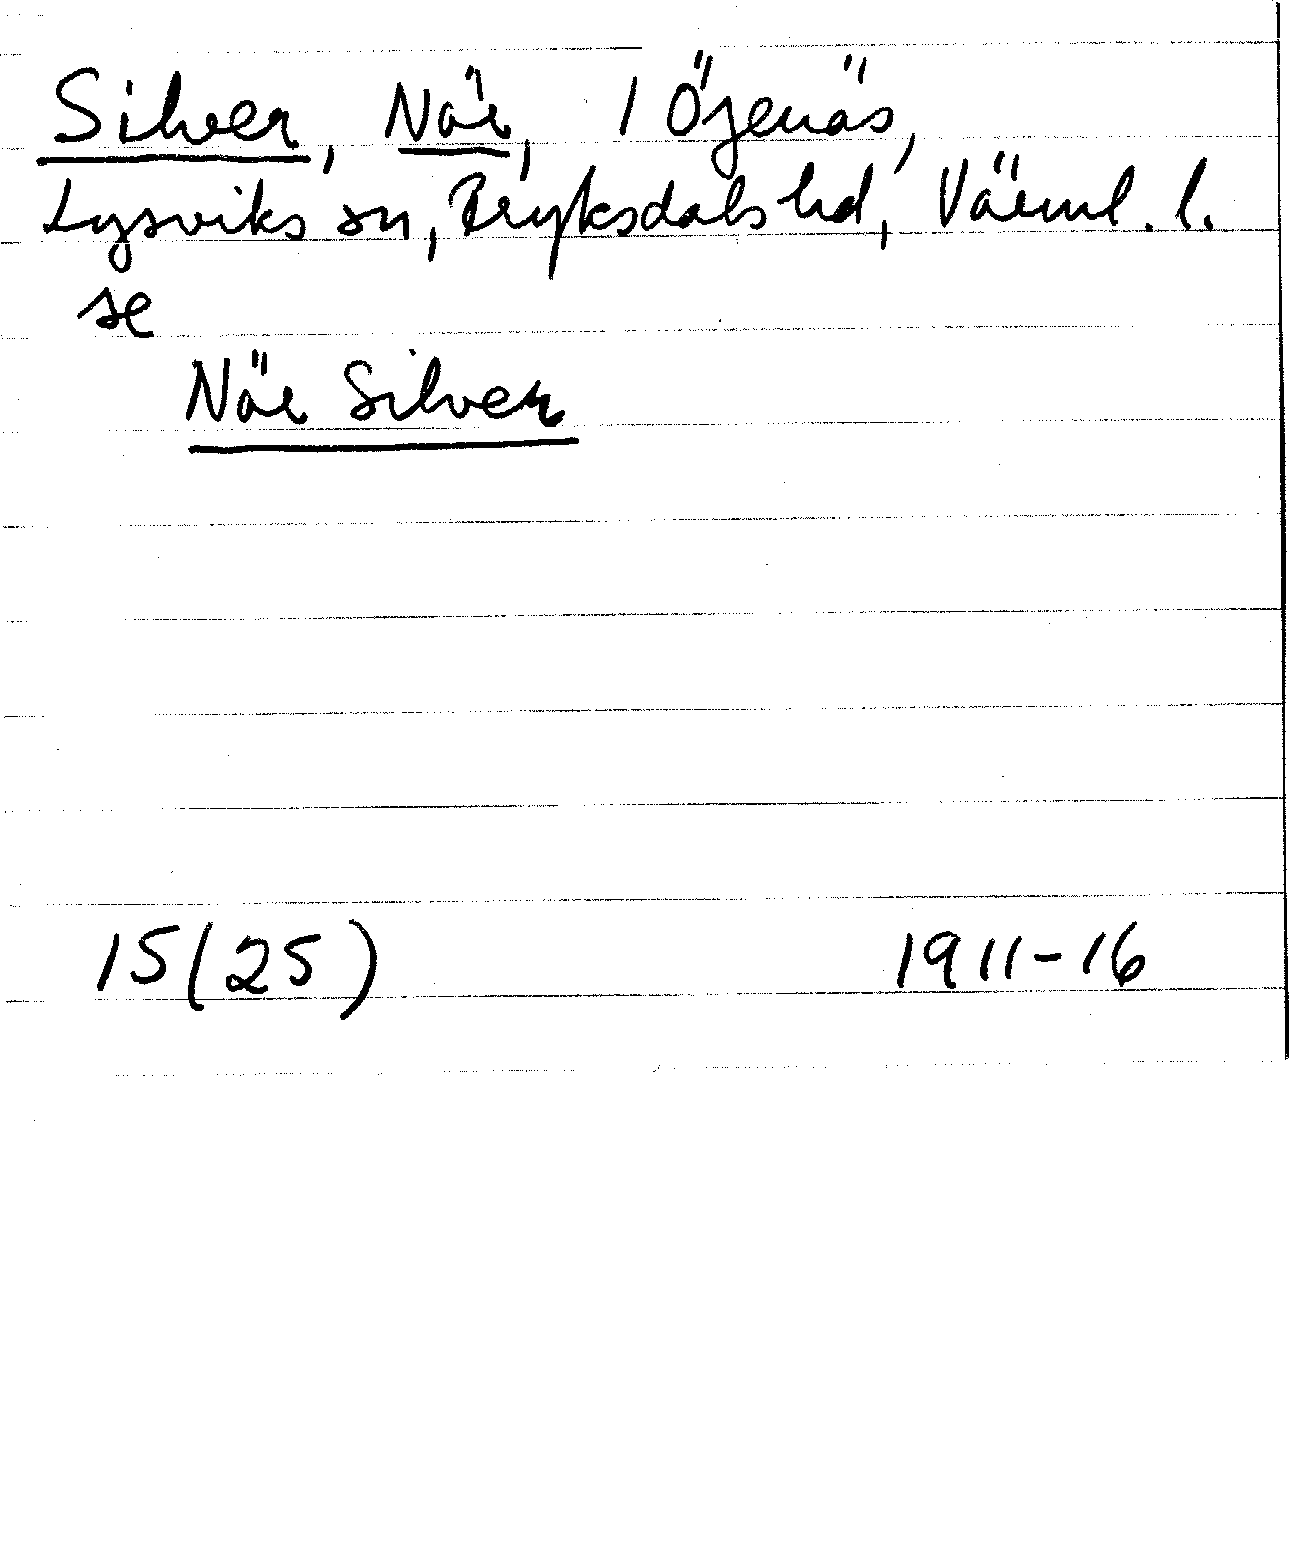 Silver, När, i Öjenäs,
Lysviks sn, Fryksdals hd, Värml. l.
se
När Silver
15(25) 1911-16